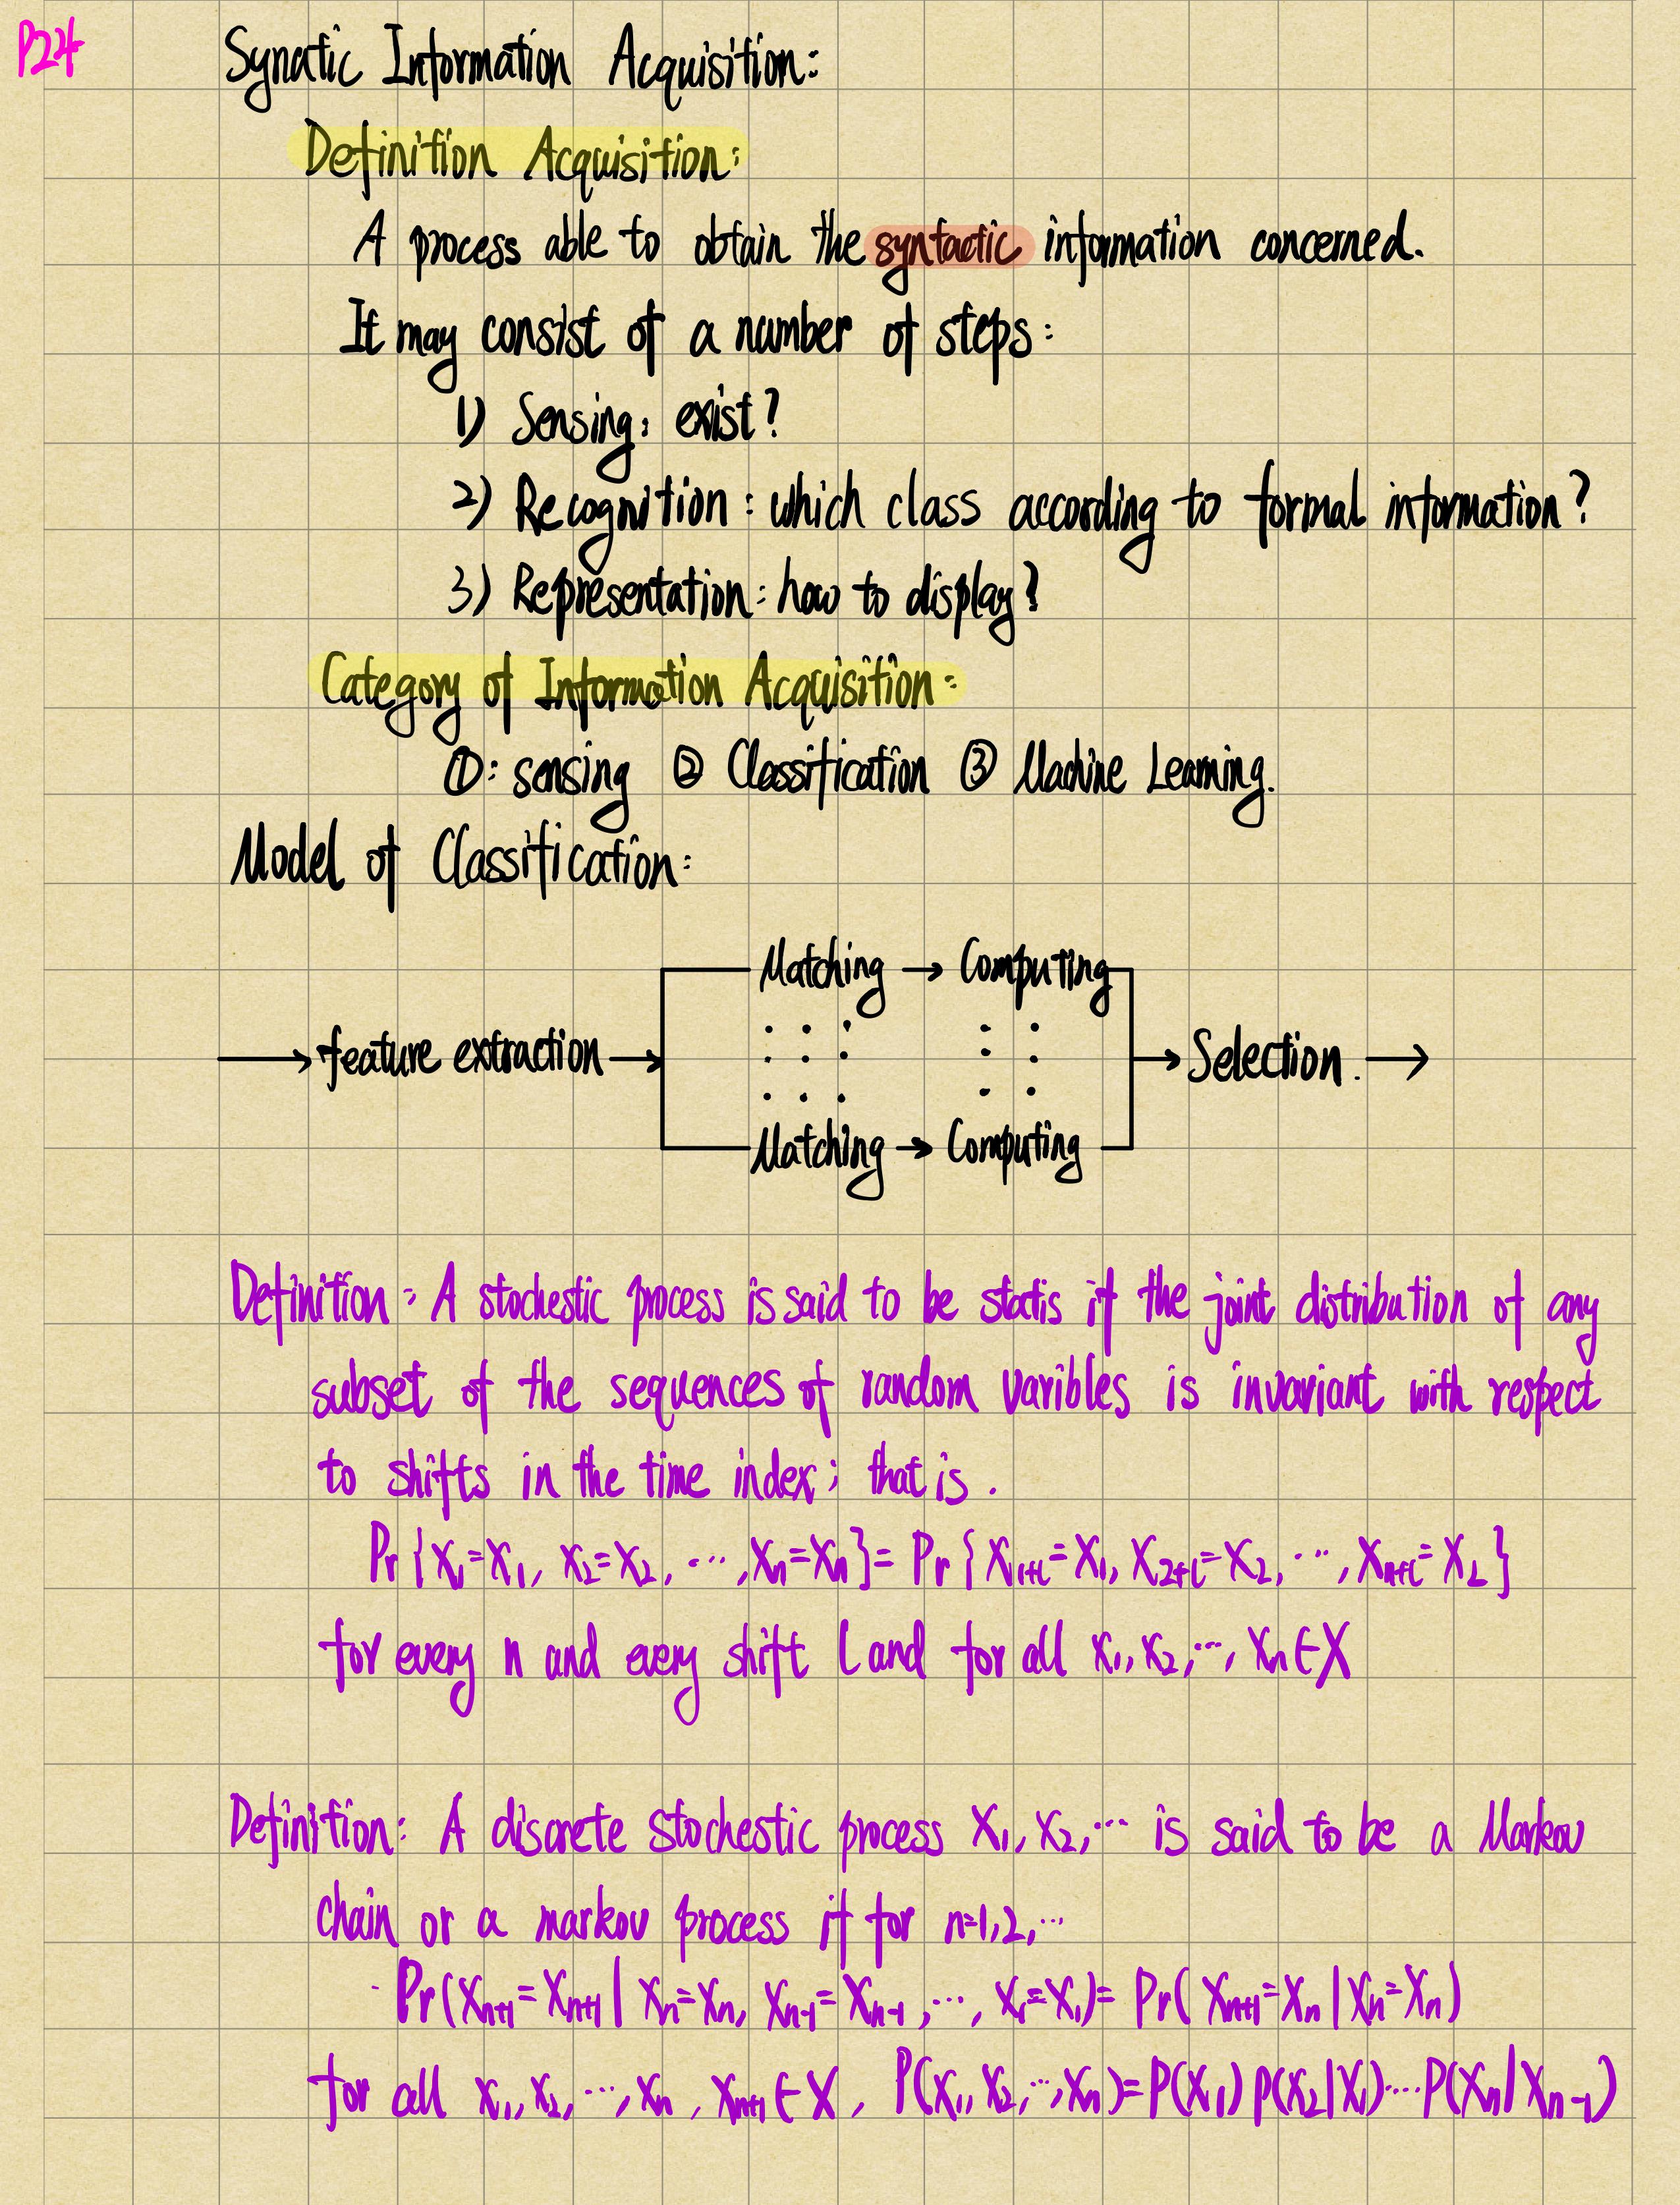 P24
Synatic Information Acquisition:
Definition Acquisition:
A process able to obtain the syntactic information concerned.
It may consist of a number of steps:
1) Sensing: exist?
2) Recognition: which class according to formal information?
3) Representation: how to display?
Category of Information Acquisition:
①: sensing ② Classification ③ Machine Learning.
Model of Classification:
Matching → Computing
→ feature extraction → Selection. →
Matching → Computing
Definition: A stochestic process is said to be statis if the joint distribution of any
subset of the sequences of random varibles is invariant with respect
to shifts in the time index; that is.
Pr{X₁=x₁, X₂=x₂, ..., Xₙ=xₙ}= Pr{X₁₊ₗ=x₁, X₂₊ₗ=x₂, ..., Xₙ₊ₗ=x₂}
for every n and every shift l and for all x₁, x₂, ..., xₙ ∈ X
Definition: A discrete stochestic process X₁, X₂, ... is said to be a Markov
chain or a markov process if for n=1,2,...
Pr(Xₙ₊₁=xₙ₊₁ | Xₙ=xₙ, Xₙ₋₁=xₙ₋₁, ..., X₁=x₁)= Pr(Xₙ₊₁=xₙ | Xₙ=xₙ)
for all x₁, x₂, ..., xₙ, xₙ₊₁ ∈ X, P(x₁, x₂, ..., xₙ)=P(x₁)p(x₂|x₁)...P(xₙ|xₙ₋₁)